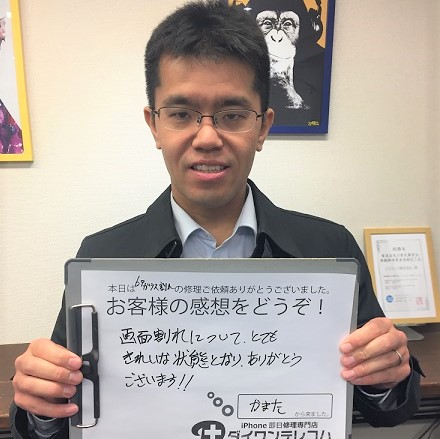 本日は6ガラス割れの修理ご依頼ありがとうございました。
お客様の感想をどうぞ！
画面割れについて、とても
きれいな状態となり、ありがとう
ございます!!
かまた
から来ました。
iPhone 即日修理専門店
ダイワンテレコム